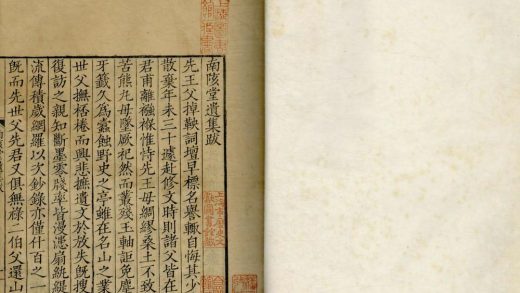 南陔堂遺集跋
先王父掉鞅詞壇早標名譽輒自悔其少
散棄年未三十遽赴修文時則諸父皆在
君甫離襁褓惟恃先王母綢繆桑土不致
苦熊丸毋墜厥祀然而叢殘玉軸詎免塵
牙籤久爲蠹蝕野史之亭雖在名山之業
世父撫桮棬而興悲摭遺文於放失旣搜
復訪之親知斷墨零牋率皆漫漶扇統鯷
流傳積歲網羅以次鈔錄亦僅什百之一
旣而先世父先君又俱無祿二伯父還山